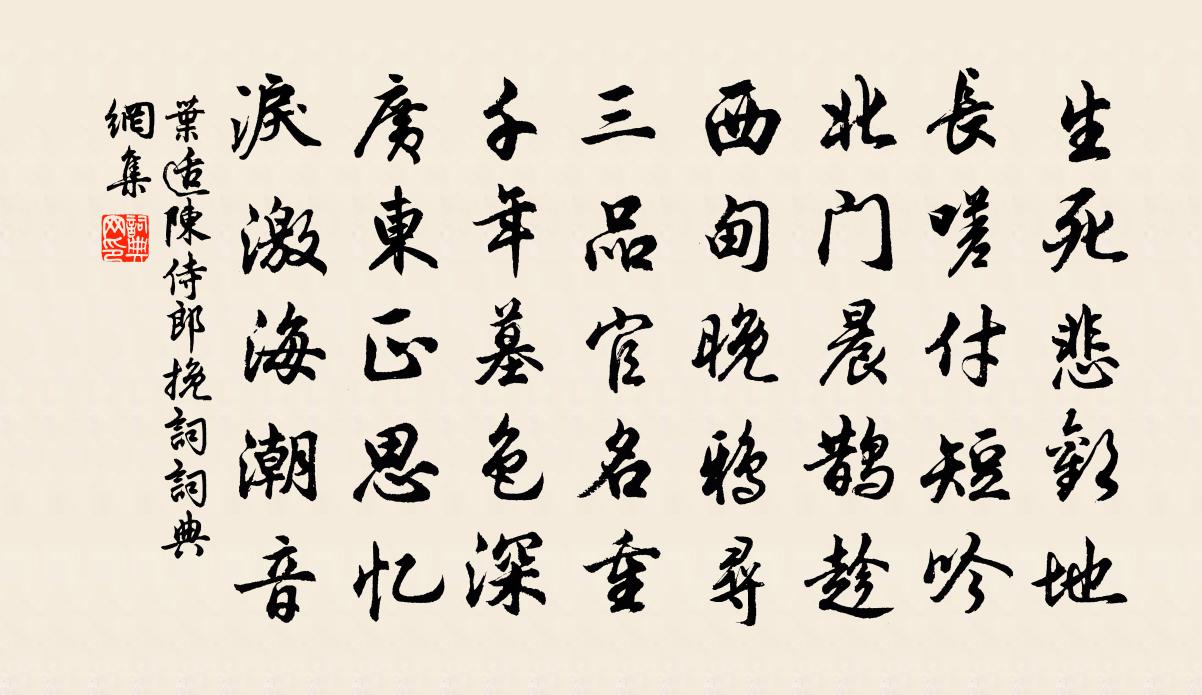 生死悲歡地
長嗟付短吟
北门晨鹊趁
西甸晚鴉尋
三品官名重
千年墓色深
廣東正思忆
淚激海潮音
葉适陳侍郎挽詞詞典
網集
詞典
网印